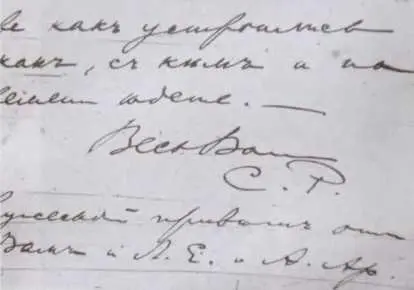 какъ устроились
какъ, съ кѣмъ и на
ѣдете. —
Весь Ваш
С. Р.
привѣтъ отъ
Вамъ и Л. Е. и А. Ар.